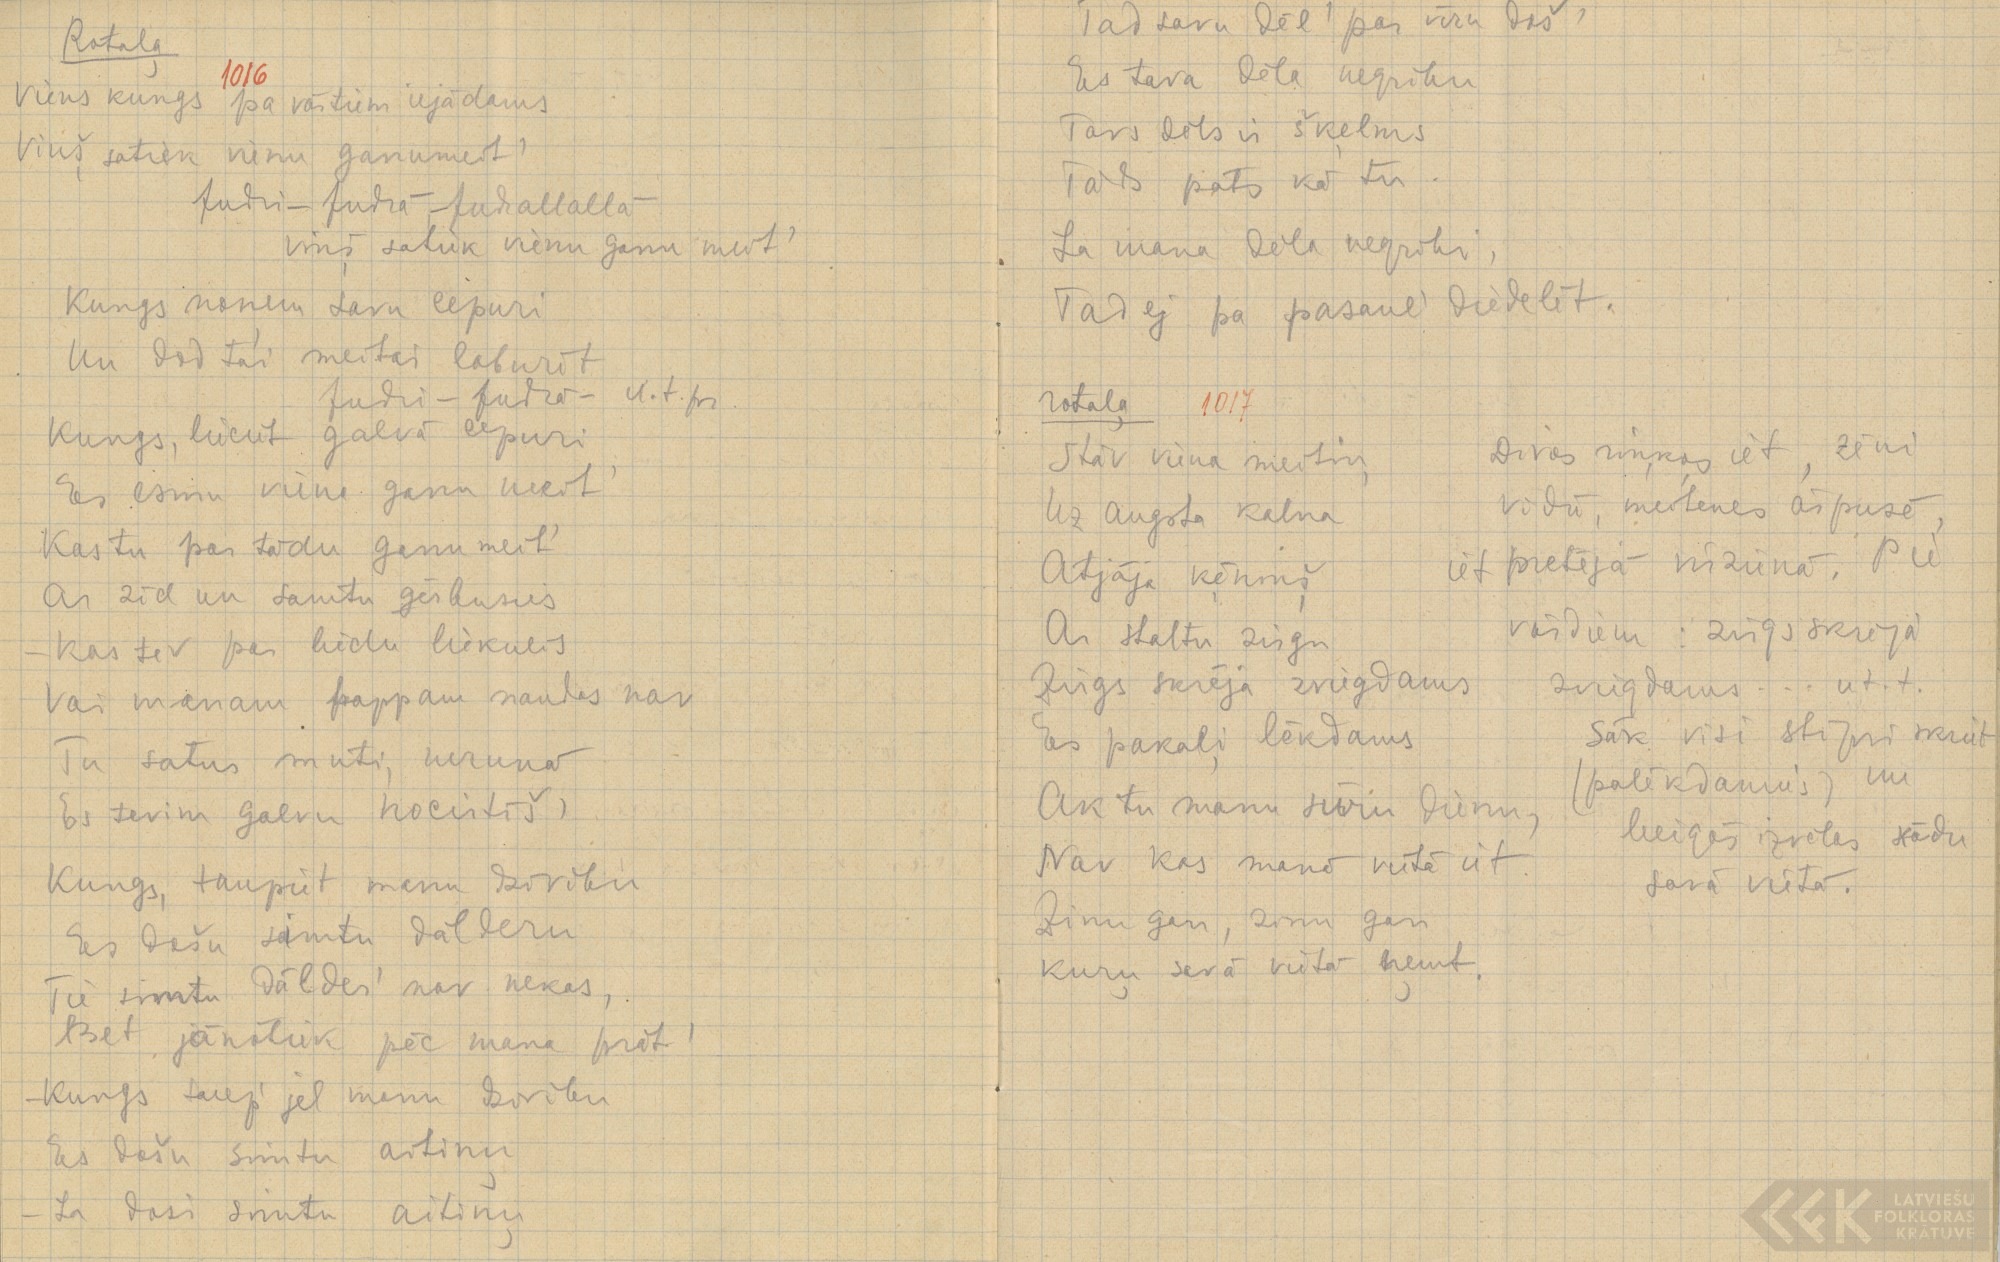 Rotaļa
1016
Viens kungs pa vārtiem iejādams
Viņš satiek vienu ganumeit'
fudri – fudrā – fudrallallā
viņš satiek vienu ganu meit'
Kungs noņem savu cepuri
Un dod tai meitai laburīt
fudri – fudrā – u.t.pr.
Kungs, lieciet galvā cepuri
Es esmu viena ganu meit'
Kas tu par tādu ganu meit'
Ar zīd un samtu ģērbusies
– Kas tev par bēdu liekulis
Vai manam pappam naudas nav
Tu satur muti, nerunā
Es tevim galvu nocirtīš'
Kungs, taupiet manu dzīvību
Es došu simtu dālderu
Tie simtu dālder' nav nekas,
Bet jānotiek pēc mana prāt'
– Kungs taup' jel manu dzīvību
Es došu simtu aitiņu
– Ja dosi simtu aitiņu
Tad savu dēl' par vīru doš'
Es tava dēla negribu
Tavs dēls ir šķelms
Tāds pats kā tu.
Ja mana dēla negribi,
Tad ej pa pasaul' diedelēt.
rotaļa 1017
Stāv viena meitiņ
Uz augsta kalna
Atjāja ķēniņš
Ar staltu zirgu
Zirgs skrēja zviegdams
Es pakaļi lēkdams
Ak tu manu sūru dienu,
Nav kas manā vietā iet.
Zinu gan, zinu gan
Kuŗu sevā vietā ņemt.
Divas riņķas iet, zēni
vidū, meitenes ārpusē,
iet pretējā virzienā. Pie
vārdiem: zirgs skrēja
zviegdams ... ut.t.
Sāk visi stipri skriet
(palēkdamies) un
beigās izvēlas kādu
savā vietā.
LATVIEŠU
FOLKLORAS
KRĀTUVE